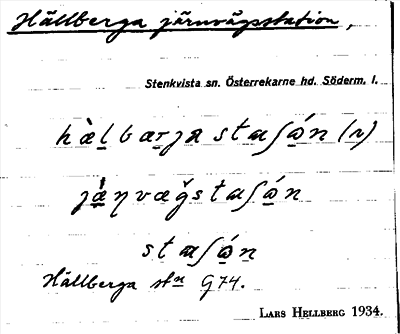 Hällberga järnvägsstation,
Stenkvista sn. Österrekarne hd. Söderm. l.
hæ̀l̠bær̠ja staʃώ̠n (n)
jǽ̠ɳvæǧstaʃώ̠n
staʃώ̠n
Hällberga stn G74.
LARS HELLBERG 1934.